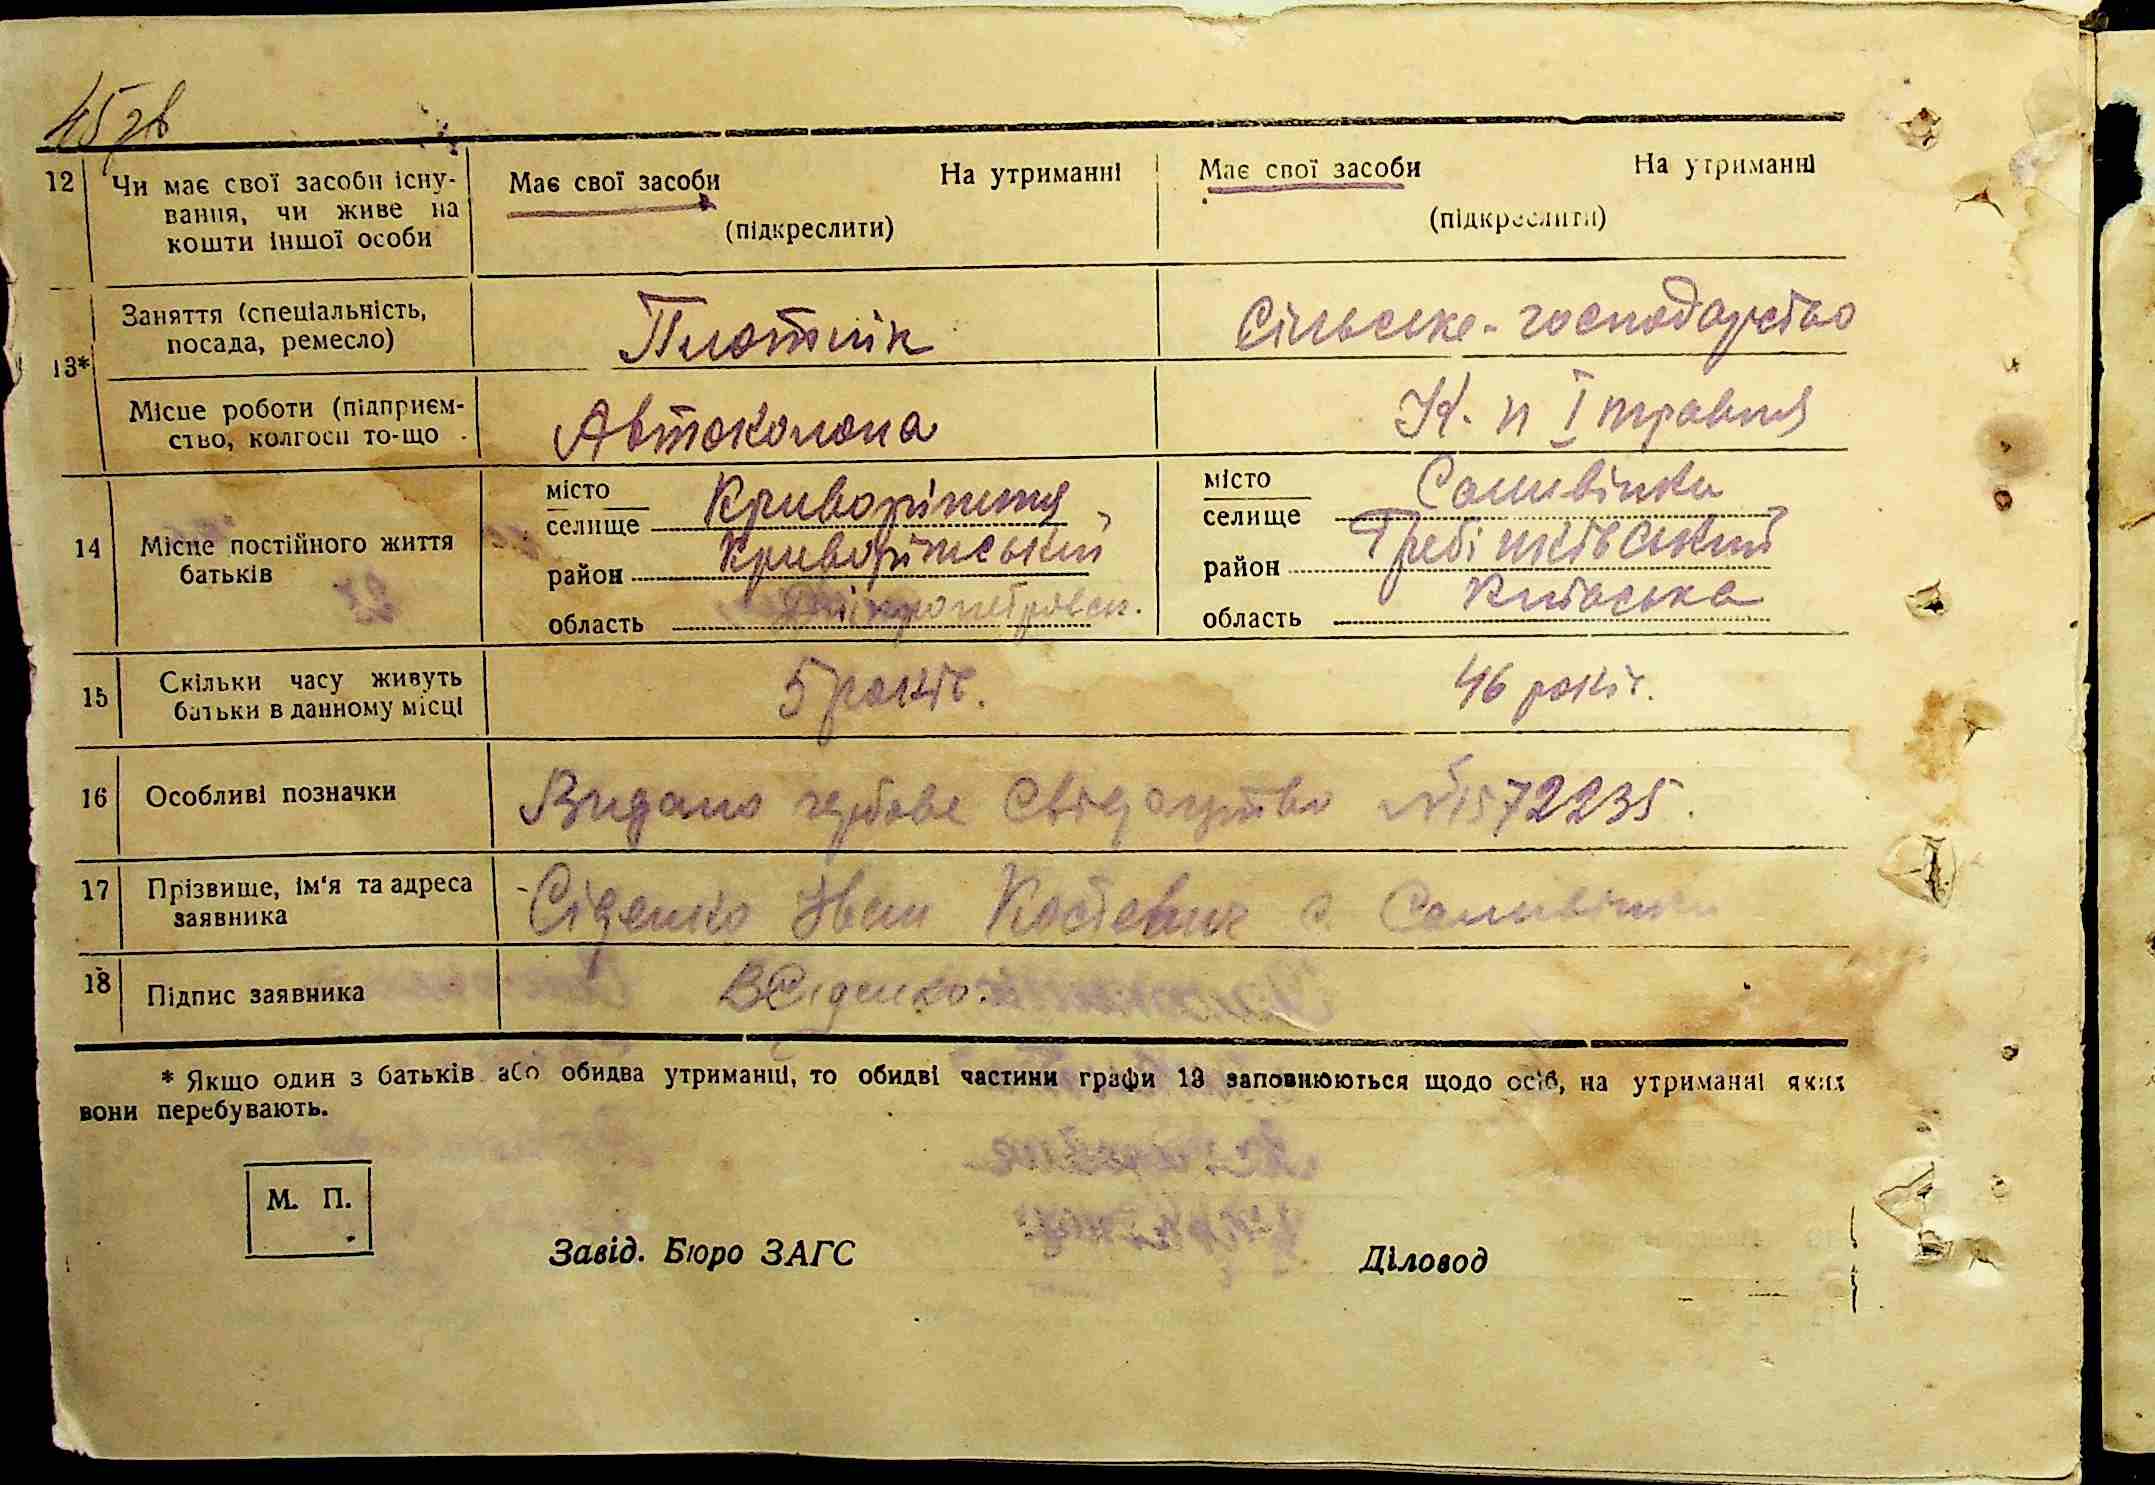 45 зв
12 Чи має свої засоби існу- Має свої засоби На утриманні Має свої засоби На утриманні
вання, чи живе на (підкреслити) (підкреслити)
кошти іншої особи
13* Заняття (спеціальність, Плотнік Сільське-господарство
посада, ремесло)
Місце роботи (підприєм- Автоколона К. п I травня
ство, колгосп то-що
14 Місце постійного життя місто Криворіжжя, місто Саливінки
батьків селище селище
район Криворіжський район Гребінківський
область Дніпропетровськ. область Київська
15 Скільки часу живуть 5 років. 46 років.
батьки в данному місці
16 Особливі позначки Видано гербове Свідоцтво №1572235.
17 Прізвище, ім'я та адреса Сіденко Іван Костевич с. Саливінки
заявника
18 Підпис заявника Сіденко.
* Якщо один з батьків або обидва утриманці, то обидві частини графи 13 заповнюються щодо осіб, на утриманні яких
вони перебувають.
М. П.
Завід. Бюро ЗАГС Діловод